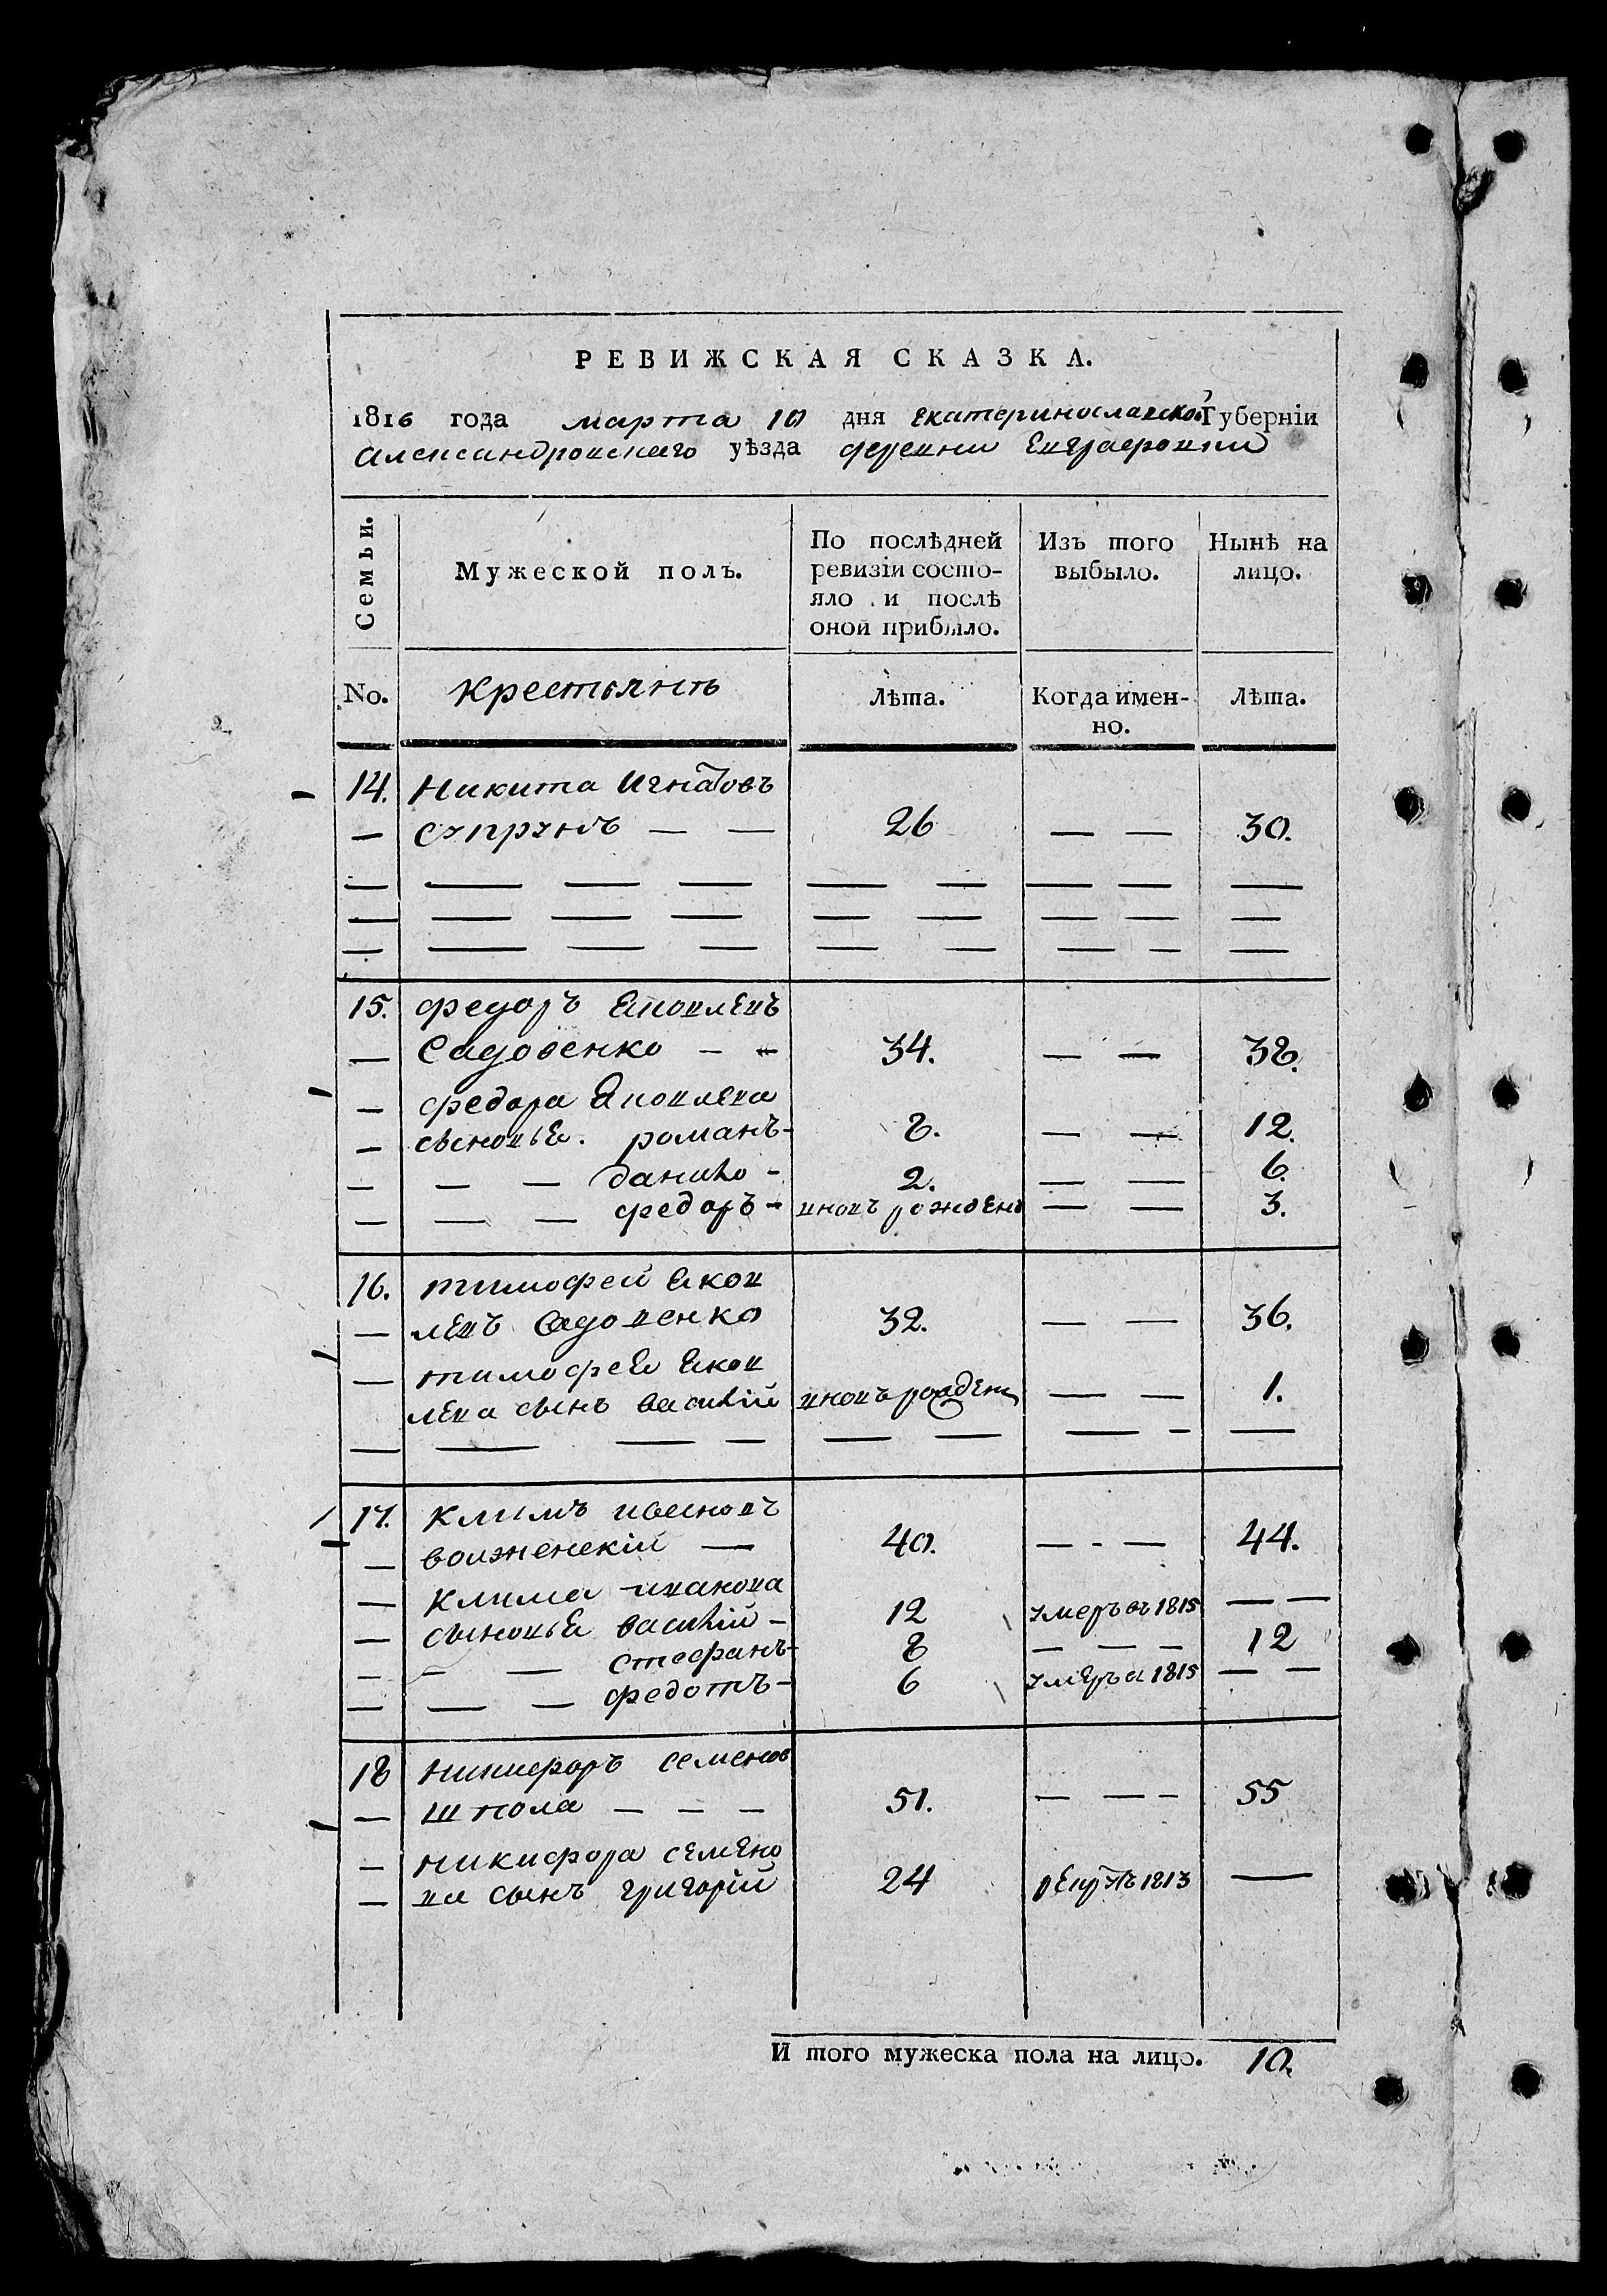 РЕВИЖСКАЯ СКАЗКА.
1816 года марта 10 дня Екатеринославской Губерніи
Александровскаго уѣзда деревни Евграфовки
Семьи.
Мужеской полъ.
По послѣдней ревизіи состо-
яло и послѣ
оной прибыло.
Изъ того
выбыло.
Нынѣ на
лицо.
No. крестьянъ Лѣта. Когда имен-
но. Лѣта.
14. Никита Игнатовъ
— супрунъ — — 26 — — 30.
15. федоръ Яковлевъ
— Садовенко - - 34. — — 38.
— федора Яковлева
— сыновья. романъ- 8. — — 12.
— — — данило - 2. — — 6.
— — — федоръ - вновь рожденъ — — 3.
16. тимофей Яков
— левъ Садовенко 32. — — 36.
— тимофея Яков
лева сынъ василій вновь рожден — — 1.
17. климъ ивановъ
— волженскій — 40. — - — 44.
— клима иванова
— сыновья василій - 12 умеръ въ 1815 — —
— — — стефанъ- 8 — — - 12
— — — федотъ- 6 умеръ в 1815 — —
18 никифоръ семенов
— шпола — — — 51. — — - 55
— никифора семено
— ва сынъ григорій 24 рекрутъ 1813 —
И того мужеска пола на лицо. 10.